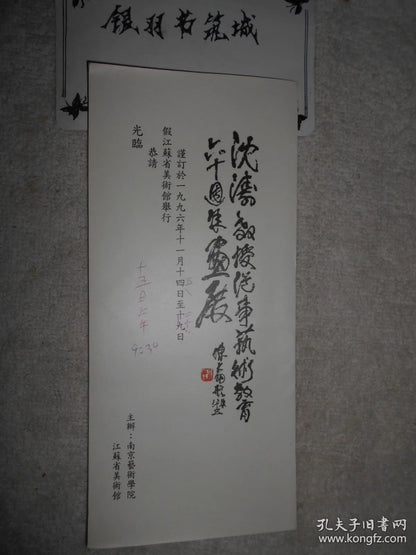 銀羽
筑城
沈濤教授從事藝術教育
六十週年畫展
謹訂於一九九六年十一月十四日至十九日
假江蘇省美術館舉行
恭請
光臨
十五日上午
9:30
主辦：南京藝術學院
江蘇省美術館
孔夫子旧书网
www.kongfz.com